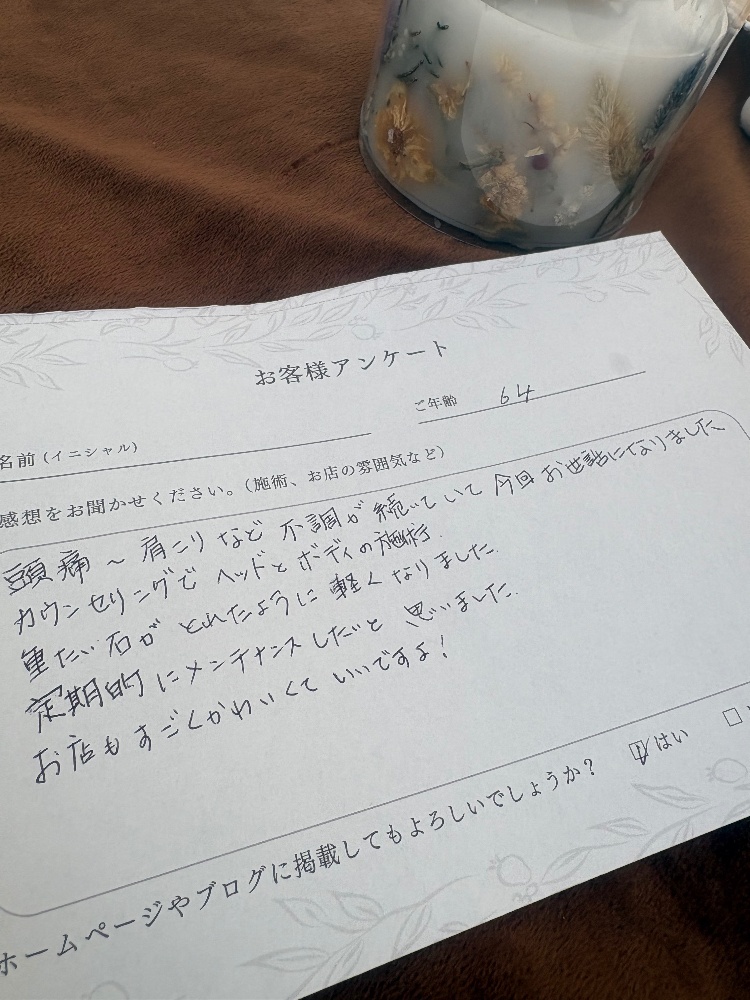 お客様アンケート
名前(イニシャル)
ご年齢 64
感想をお聞かせください。(施術、お店の雰囲気など)
頭痛~肩こりなど不調が続いていて今回お世話になりました
カウンセリングでヘッドとボディの施術。
重たい石がとれたように軽くなりました。
定期的にメンテナンスしたいと思いました。
お店もすごくかわいくていいですよ!
ホームページやブログに掲載してもよろしいでしょうか? はい